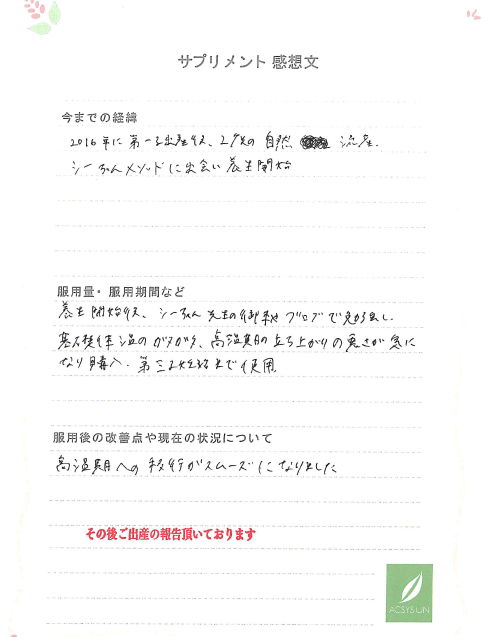 サプリメント 感想文
今までの経緯
2016年に第一子出産後、2度の自然流産。
シーちゃんメソッドに出会い養生開始
服用量・服用期間など
養生開始後、シーちゃん先生の御著やブログで見つけ出し
基礎体温のガタガタ、高温期の立ち上がりの悪さが気に
なり購入。第三子妊娠まで使用
服用後の改善点や現在の状況について
高温期への移行がスムーズになりました
その後ご出産の報告頂いております
ACSYSUN